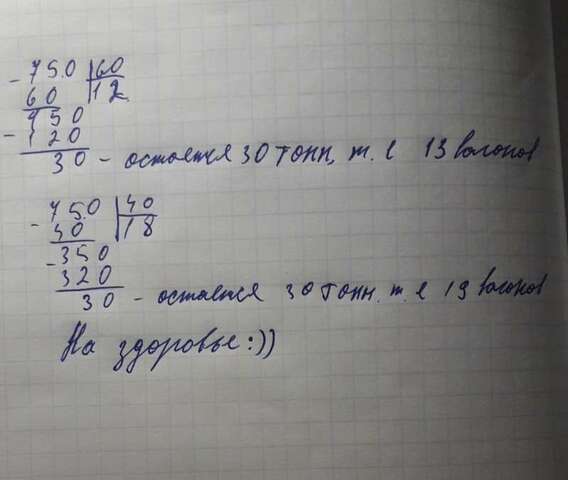 - 750 |60
60 |12
150
- 120
30 - остается 30 тонн, т. е 13 вагонов
- 750 |40
40 |18
- 350
320
30 - остается 30 тонн. т. е 19 вагонов
На здоровье :))